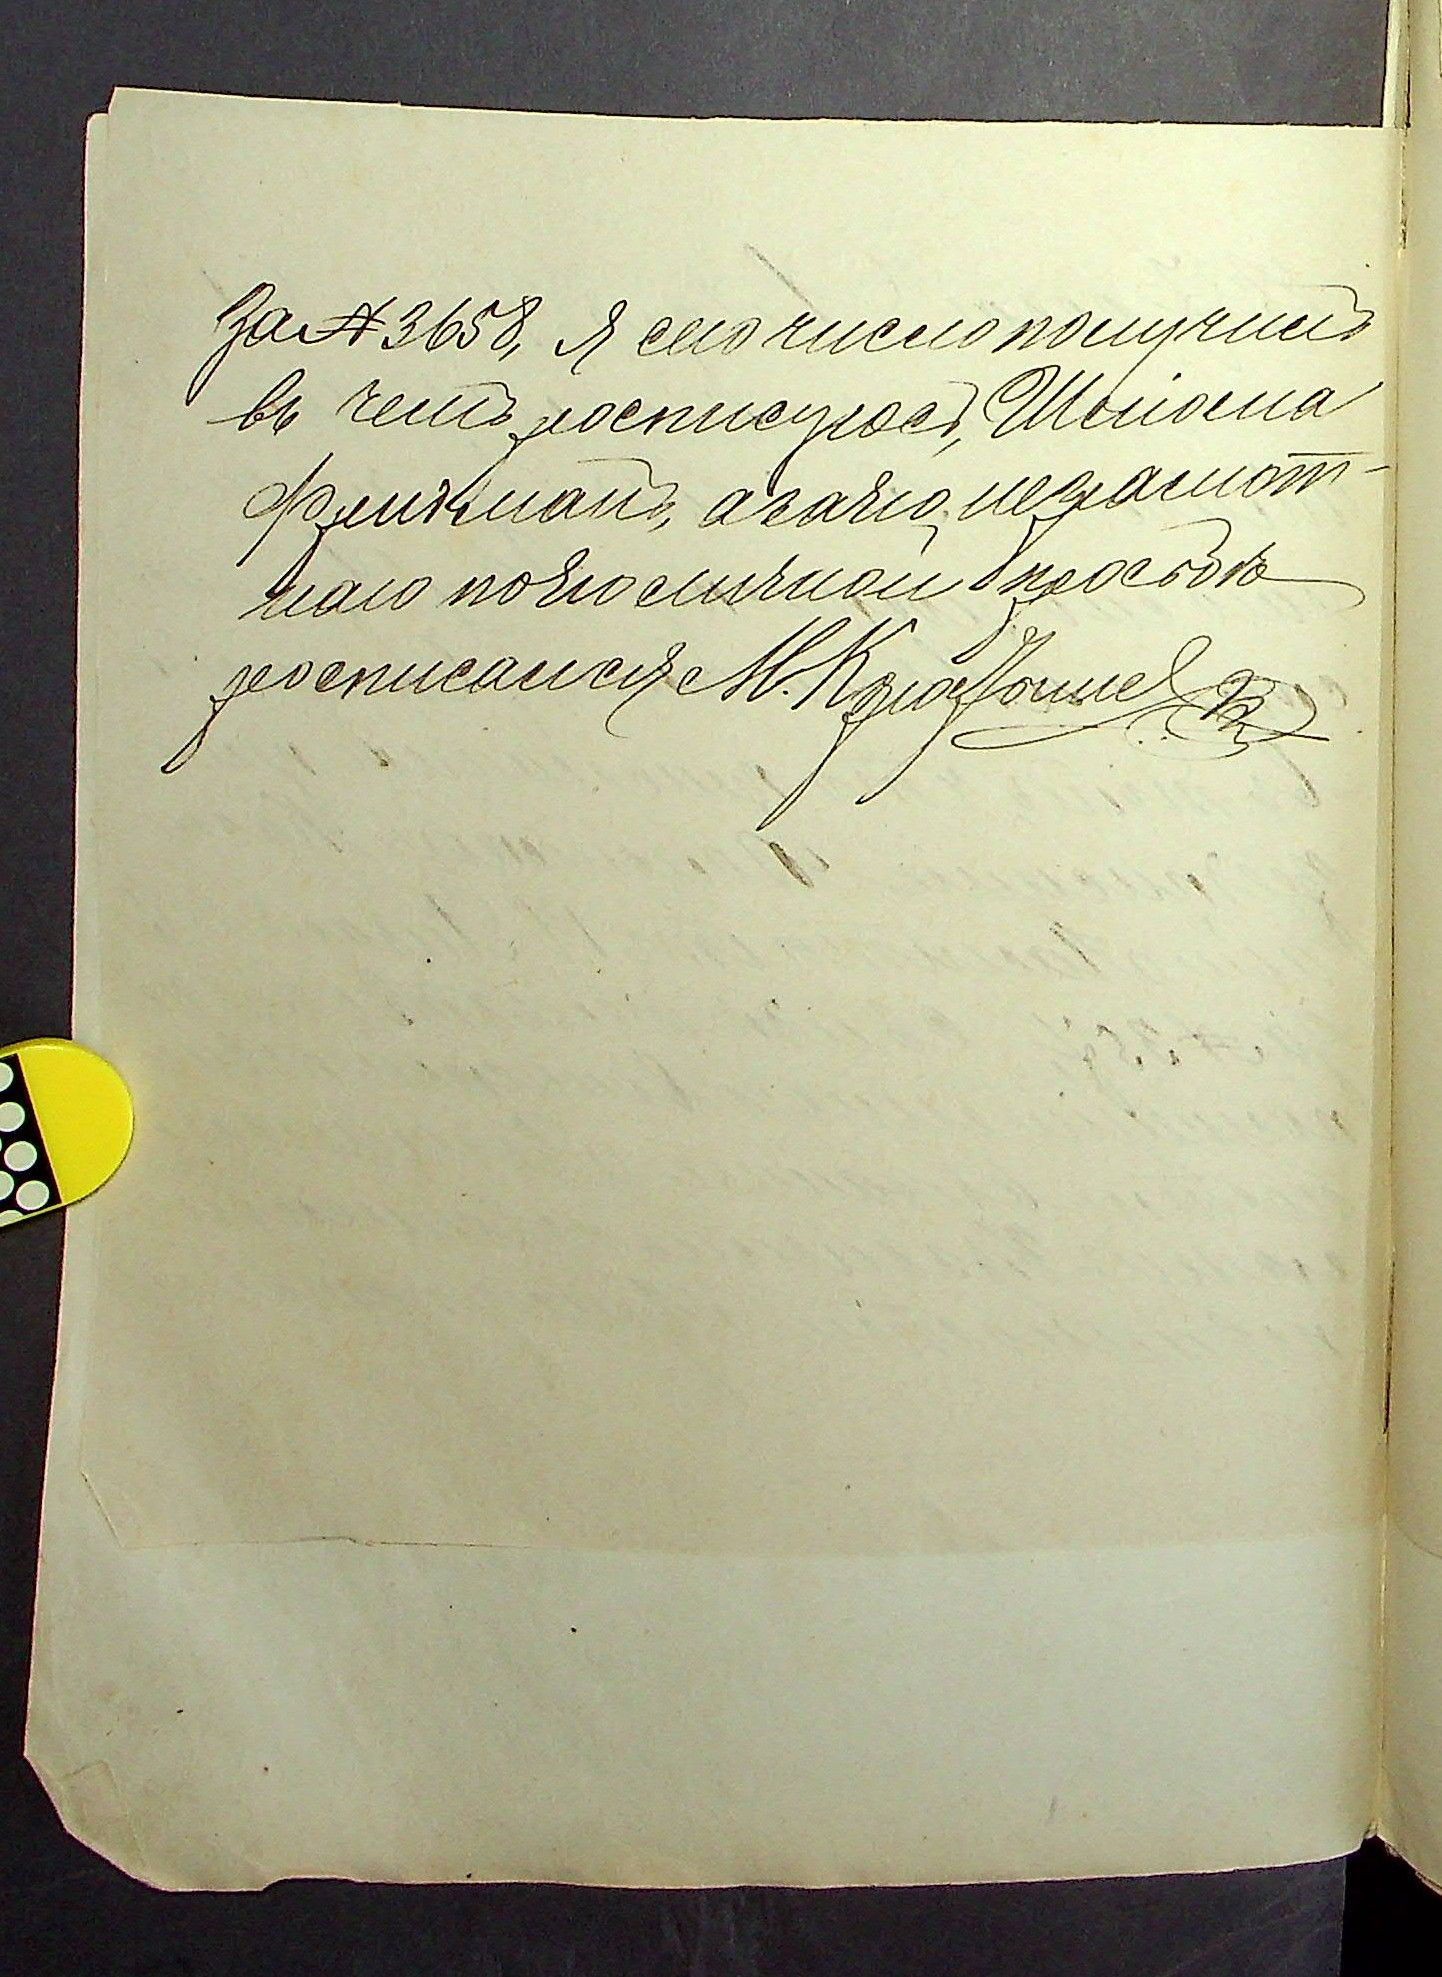 За № 3658, я сего число получилъ
въ чемъ росписуюсъ, Шліома
Фридманъ, а за его неграмот-
наго по его личной прозьбѣ
росписался М.